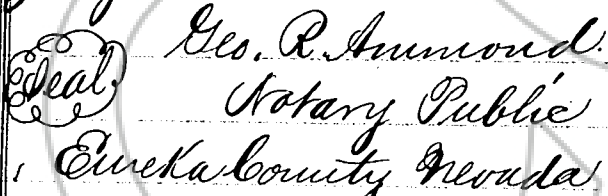 Geo. R. Ammond.
Seal. Notary Public
Eureka County Nevada